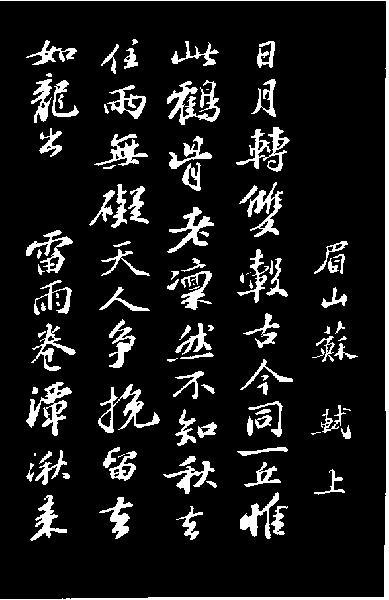 眉山蘇軾上
日月轉雙轂古今同一丘惟
此鶴骨老凜然不知秋去
住兩無礙天人争挽留去
如龍出　雷雨卷潭湫来